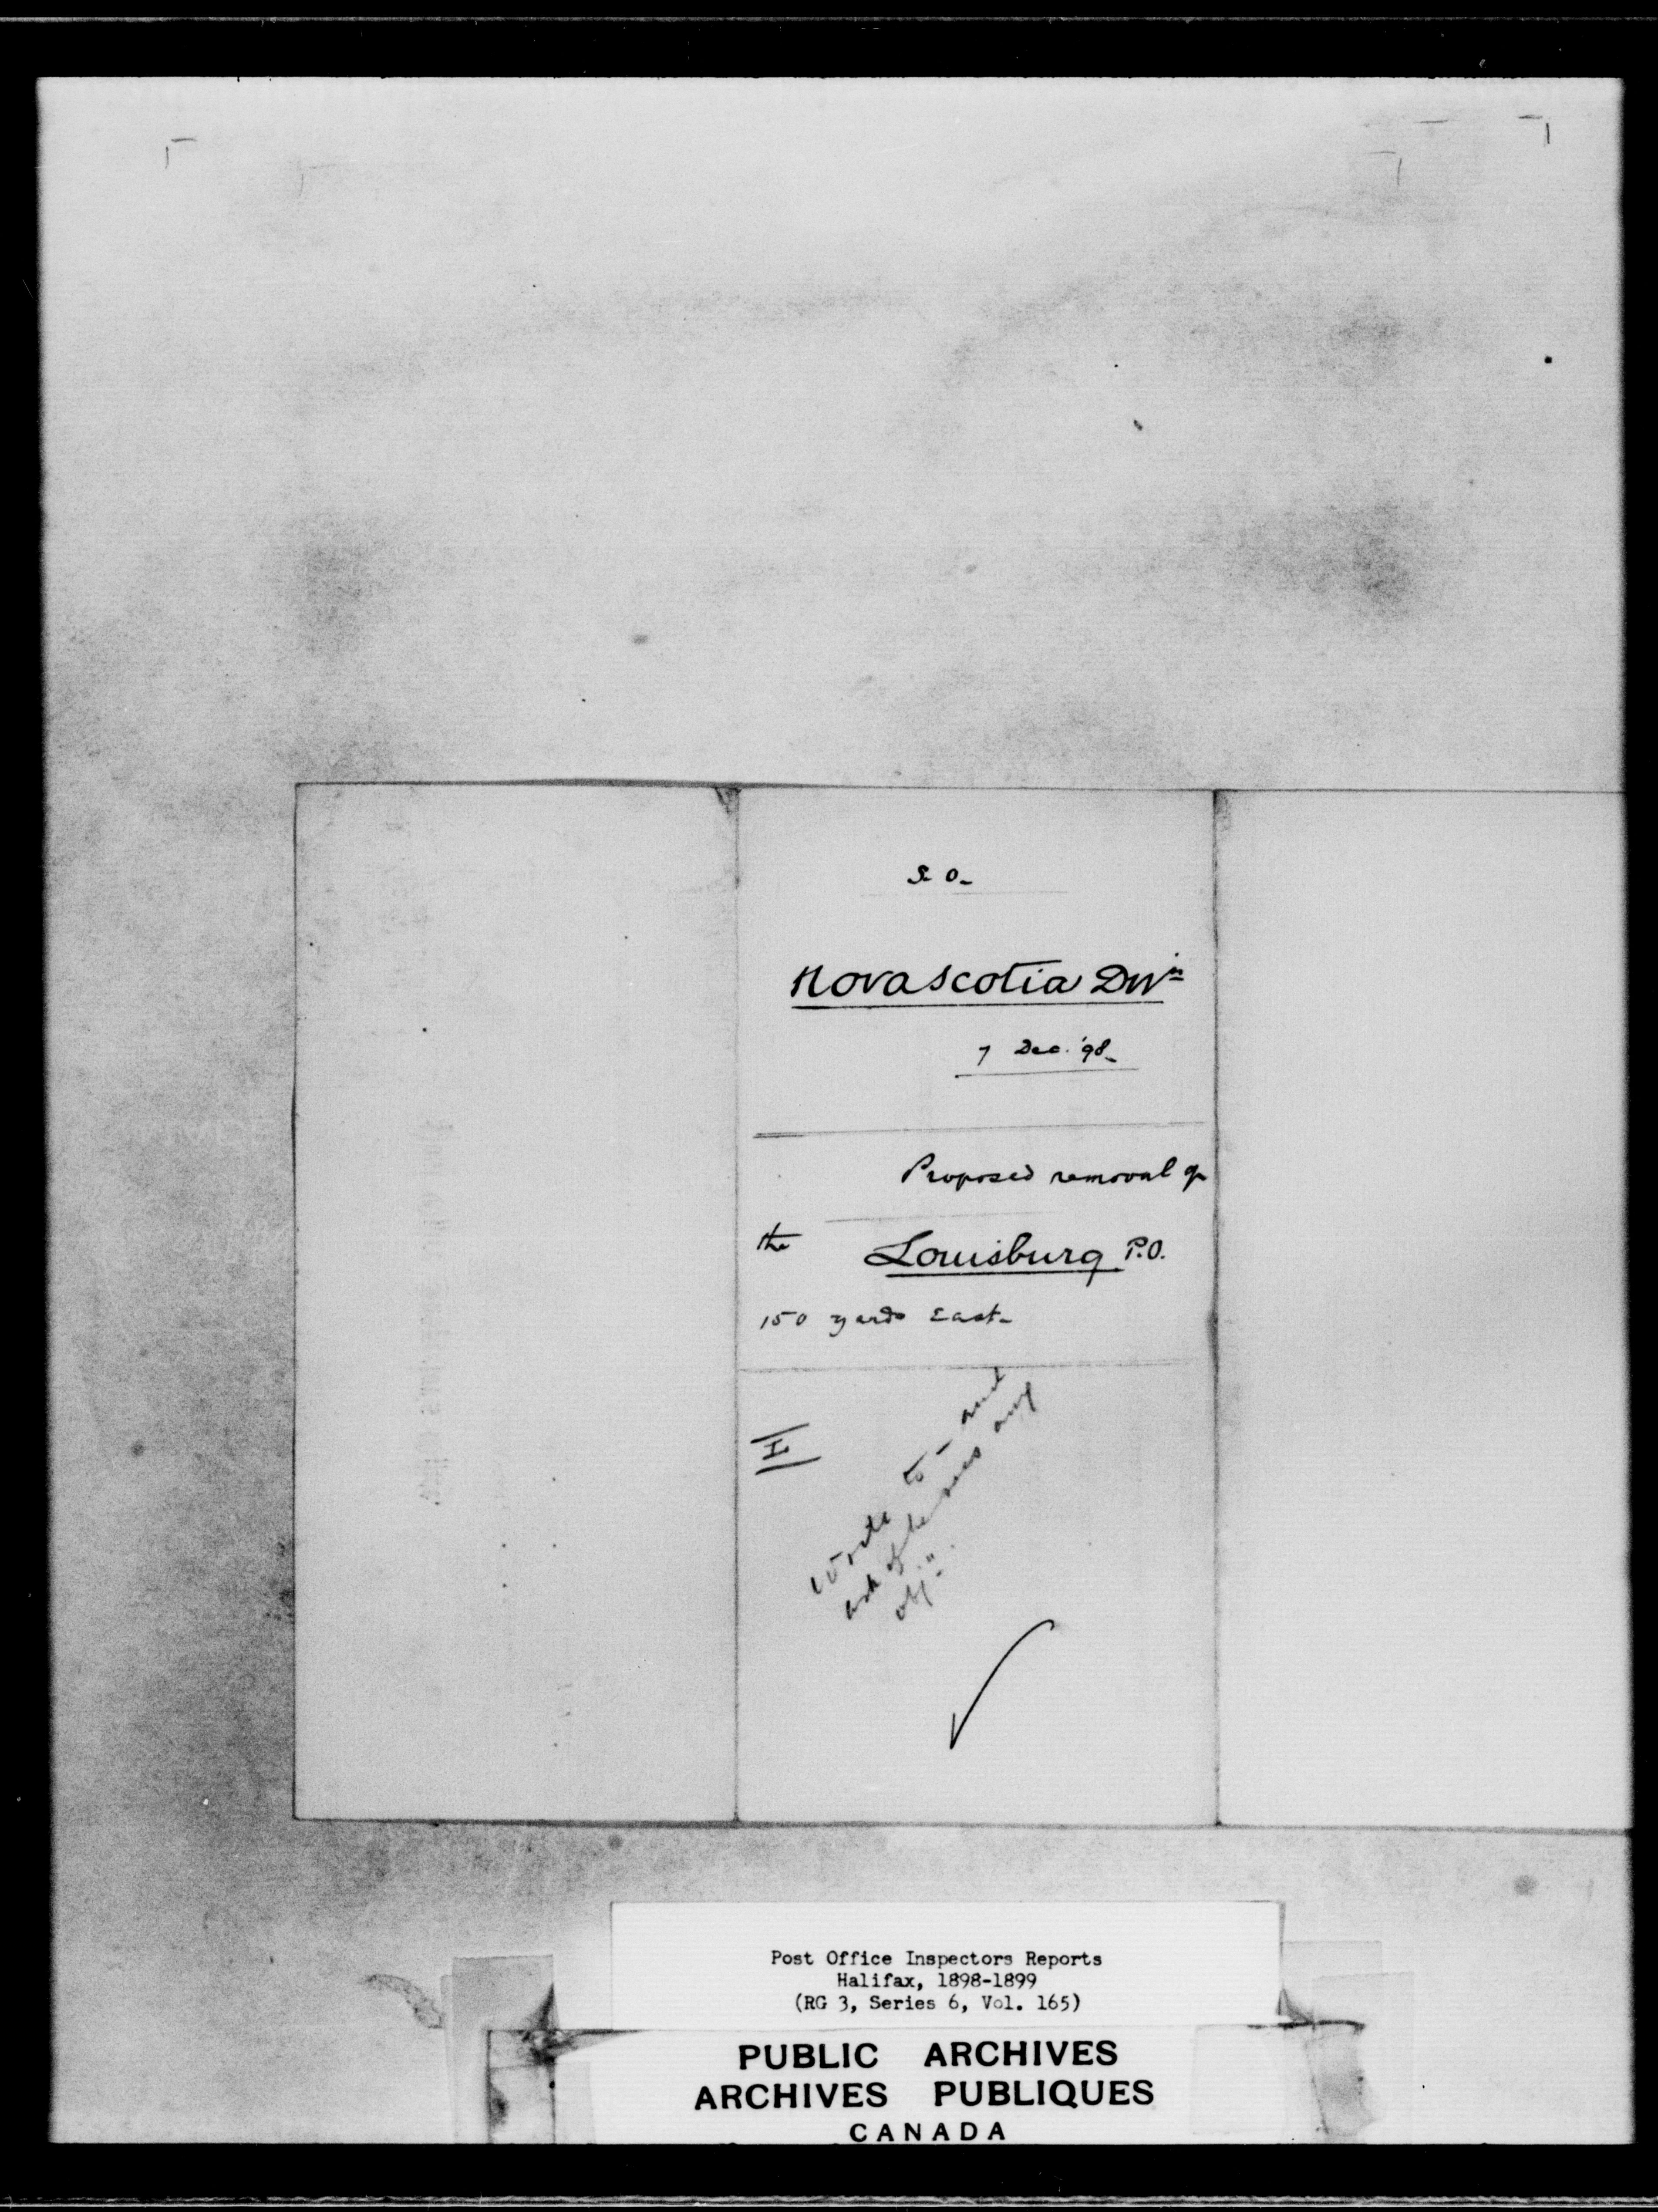 S. O.
Nova Scotia Divn
7 Dec. '98.
Proposed removal of
the Louisburg P.O.
150 yards East.
Wrote to - and
ask if he sees any
objn
Post Office Inspectors Reports
Halifax, 1898-1899
(RG 3, Series 6, Vol. 165)
PUBLIC ARCHIVES
ARCHIVES PUBLIQUES
CANADA